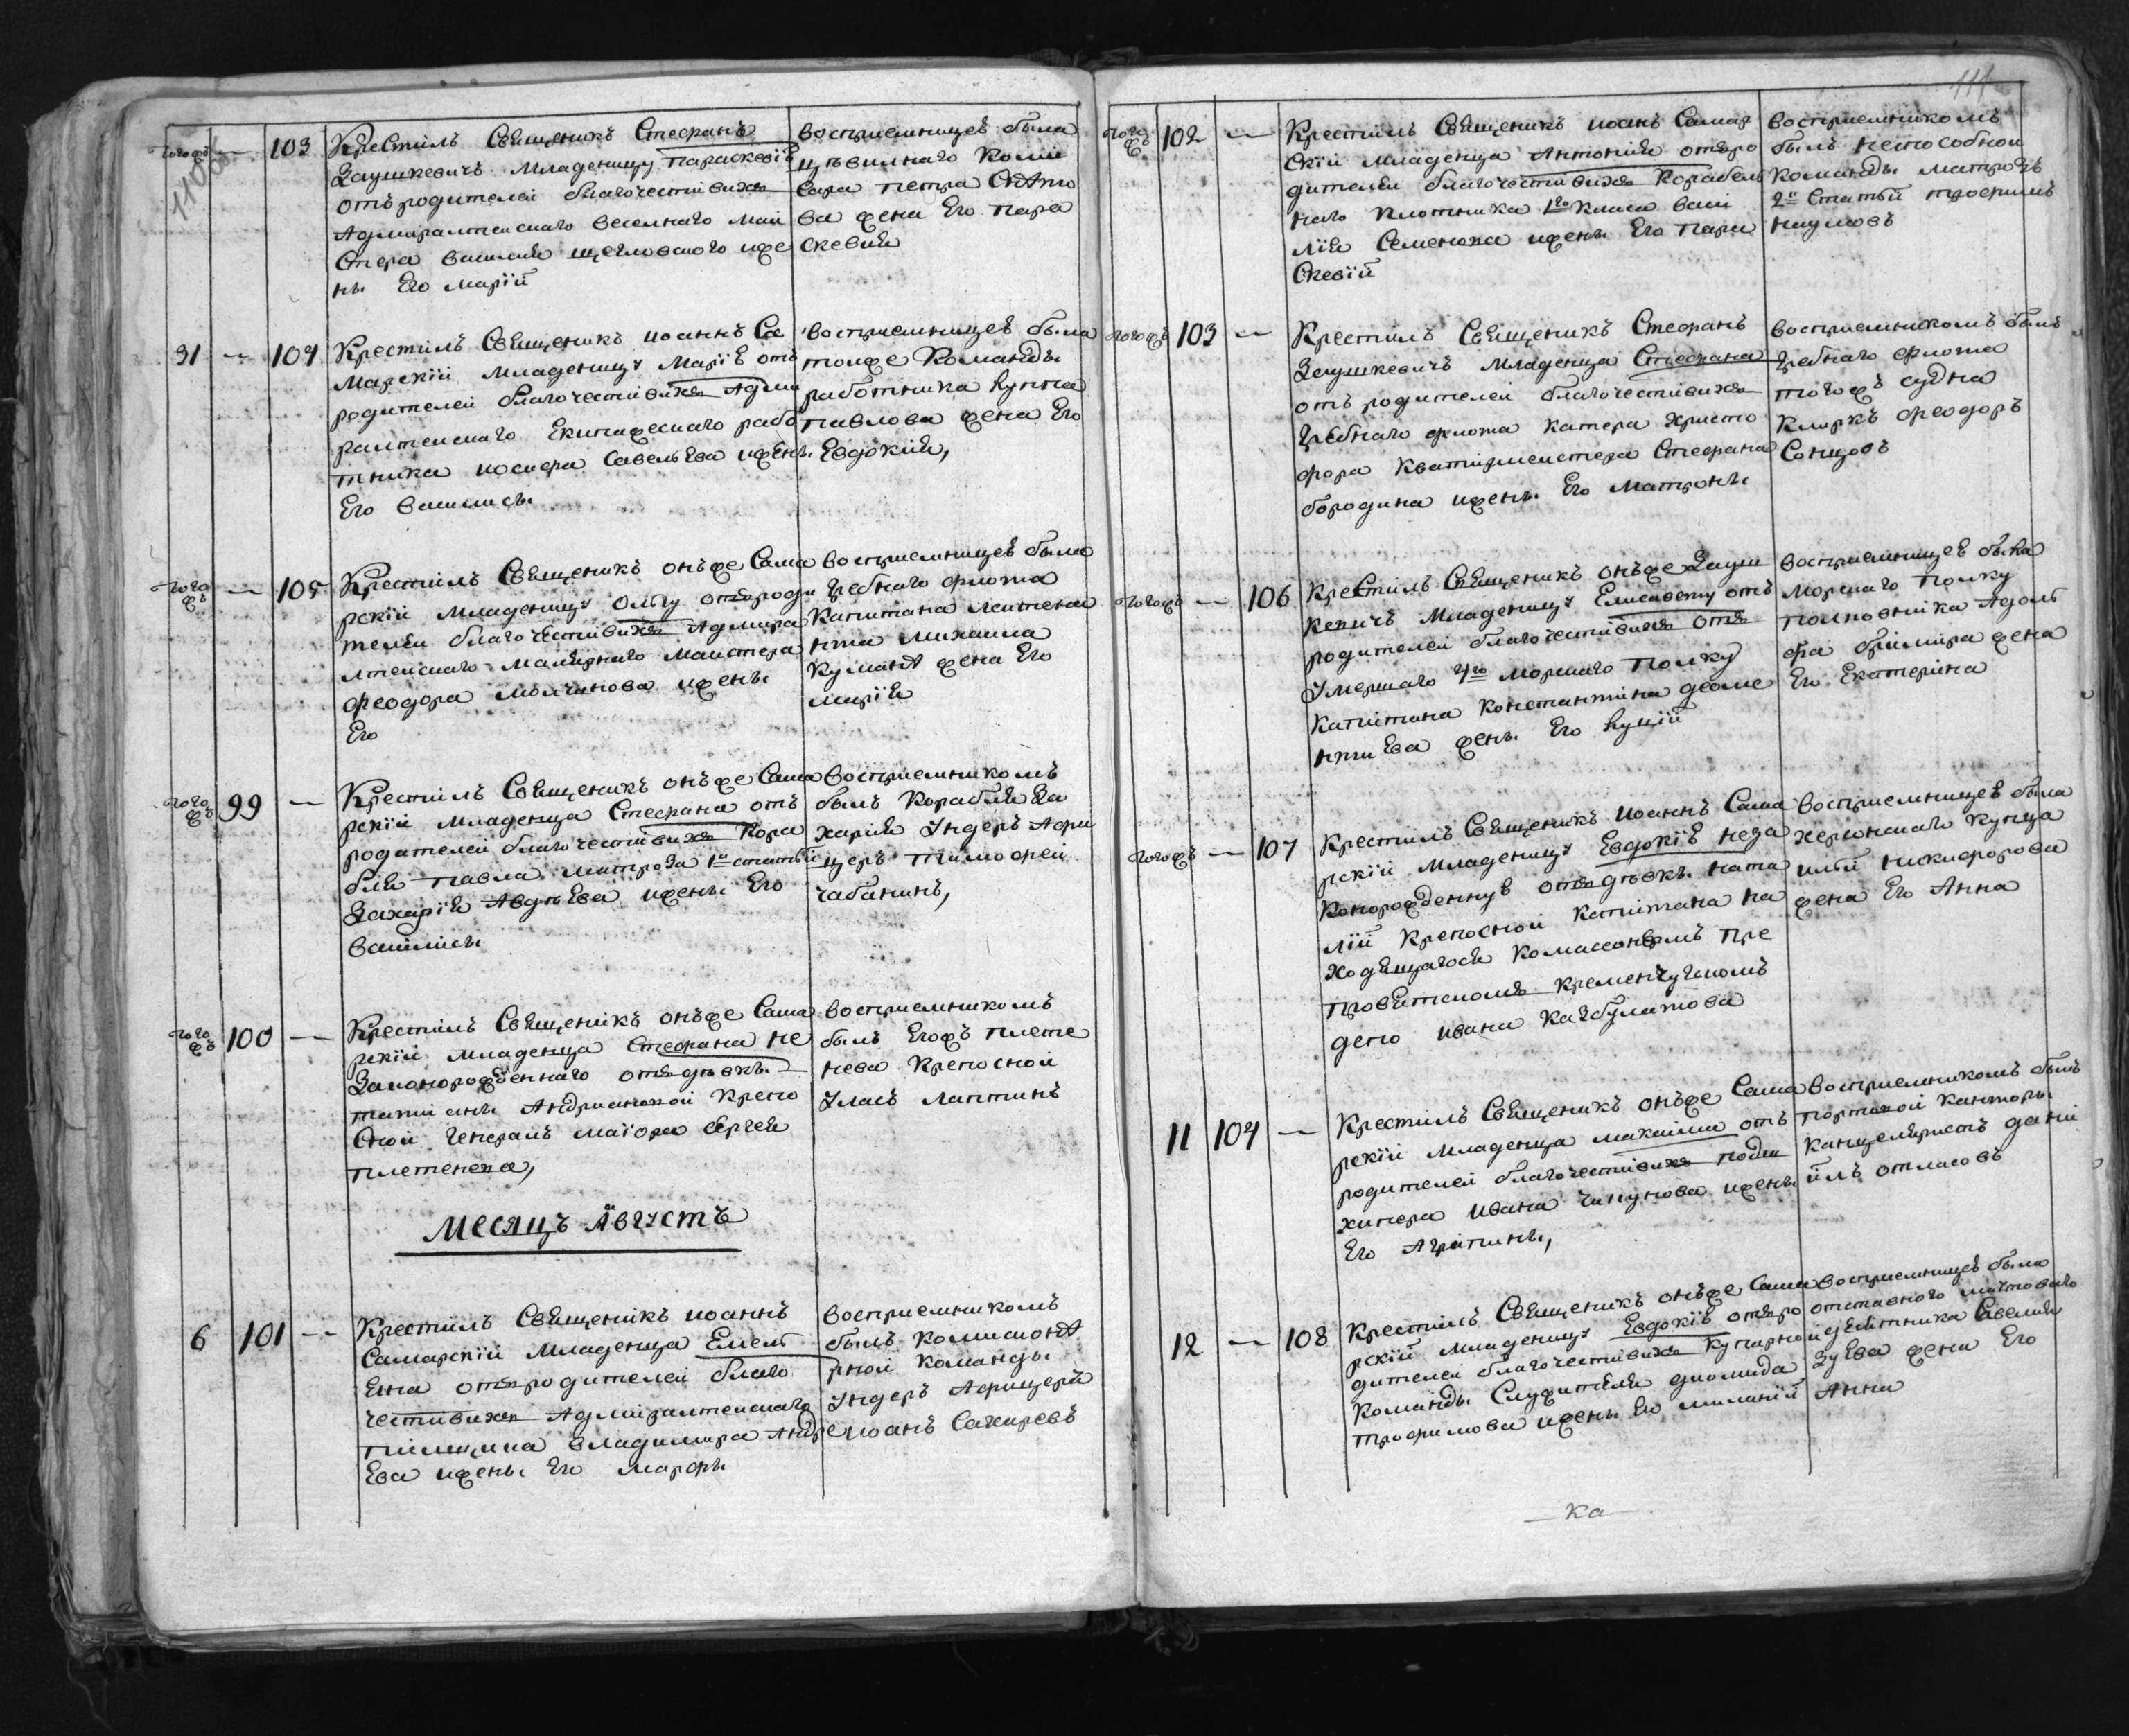 тогожъ — 103 Крестилъ Священикъ Стефанъ
Заушкевичъ младеницу Параскевію
отъ родителей благочестивихъ
Адмиралтейскаго весельнаго май
стера василия щегловскаго ижe
нъ его маріи
восприемницею была
цывилнаго коми
сара петра
ва жена его пара
скевия
31 — 104 Крестилъ Священикъ иоаннъ Са
марскій младеницу Марію отъ
родителей благочестивихъ Адми
ралтейскаго екипажескаго рабо
тника иосифа Савельева ижены
его василисы
восприемницею была
тоиже команды
работника
павлова жена его
Евдокия,
тогожъ — 105 Крестилъ Священикъ онъже Сама
рскій младеницу Ольгу отъ роди
телей благочестивихъ Адмира
лтейскаго малярнаго майстера
феодора молчанова ижены
его
восприемницею была
гребнаго флота
капитана лейтена
нта михаила
жена его
марія
тогожъ 99 — Крестилъ Священикъ онъже Сама
рскій младенца Стефана отъ
родителей благочестивихъ кора
бля павла матроза 1й статьи
Захарія Авдѣева ижены его
василисы
восприемникомъ
былъ корабля За
харія Ундеръ Афи
церъ тимофей
чабанинъ,
тогожъ 100 — Крестилъ Священикъ онъже Сама
рскій младенца Стефана не
Законорожденнаго отъ дѣвки
татияны Андриановой крепо
сной генералъ маіора Сергея
плетенева,
восприемникомъ
былъ егожъ плете
нева крепосной
Уласъ лаптинъ
Месяцъ Августъ
6 101 — Крестилъ Священикъ иоаннъ
Самарскій младенца Емель
яна отъ родителей благо
честивихъ Адмиралтейскаго
владимира Андре
ева ижены его марфы
восприемникомъ
былъ
рной команды
Ундеръ Афицеръ
иоанъ Сахаревъ
111
тогожъ 102 — Крестилъ Священикъ иоанъ Самар
скій младенца Антонія отъ ро
дителей благочестивихъ корабель
наго плотника 1го класа васи
лія Семенова ижены его пара
скевіи
восприемникомъ
былъ неспособной
команды матрозъ
2й Статьи трофимъ
наумовъ
тогожъ 103 — Крестилъ Священикъ Стефанъ
Заушкевичъ младенца Стефана
отъ родителей благочестивихъ
гребнаго флота катера христо
фора квартирмейстера Стефана
бородина ижены его матроны
восприемникомъ былъ
гребнаго флота
тогожъ судна
клиркъ феодоръ
Сонцовъ
тогожъ — 106 Крестилъ Священикъ онъже Зауш
кевичъ младеницу Елисавету отъ
родителей благочестивихъ отъ
Умершаго 4го морскаго полку
капитана константина
жены его
восприемницею была
морскаго полку
полковника Адоль
фа жена
его Екатерина
тогожъ — 107 Крестилъ Священикъ иоаннъ Сама
рскій младеницу Евдокію неза
конорожденную отъ дѣвки ната
лии крепосной капитана на
ходящагося комасонеромъ при
кременчугскомъ
депо ивана кайбулатова
восприемницею была
херсонскаго купца
ильи никифорова
жена его Анна
11 104 — Крестилъ Священикъ онъже Сама
рскій младенца максима отъ
родителей благочестивихъ подш
хипера ивана ижены
его Агрипины,
восприемникомъ былъ
портовой канторы
канцеляристъ дани
илъ отласовъ
12 — 108 Крестилъ Священикъ онъже Сама
рскій младеницу Евдокію отъ ро
дителей благочестивихъ купарной
команды Служителя диомида
трофимова ижены его миланіи
восприемницею была
отставного мачтоваго
десятника Савелия
Зуева жена его
Анна
ка